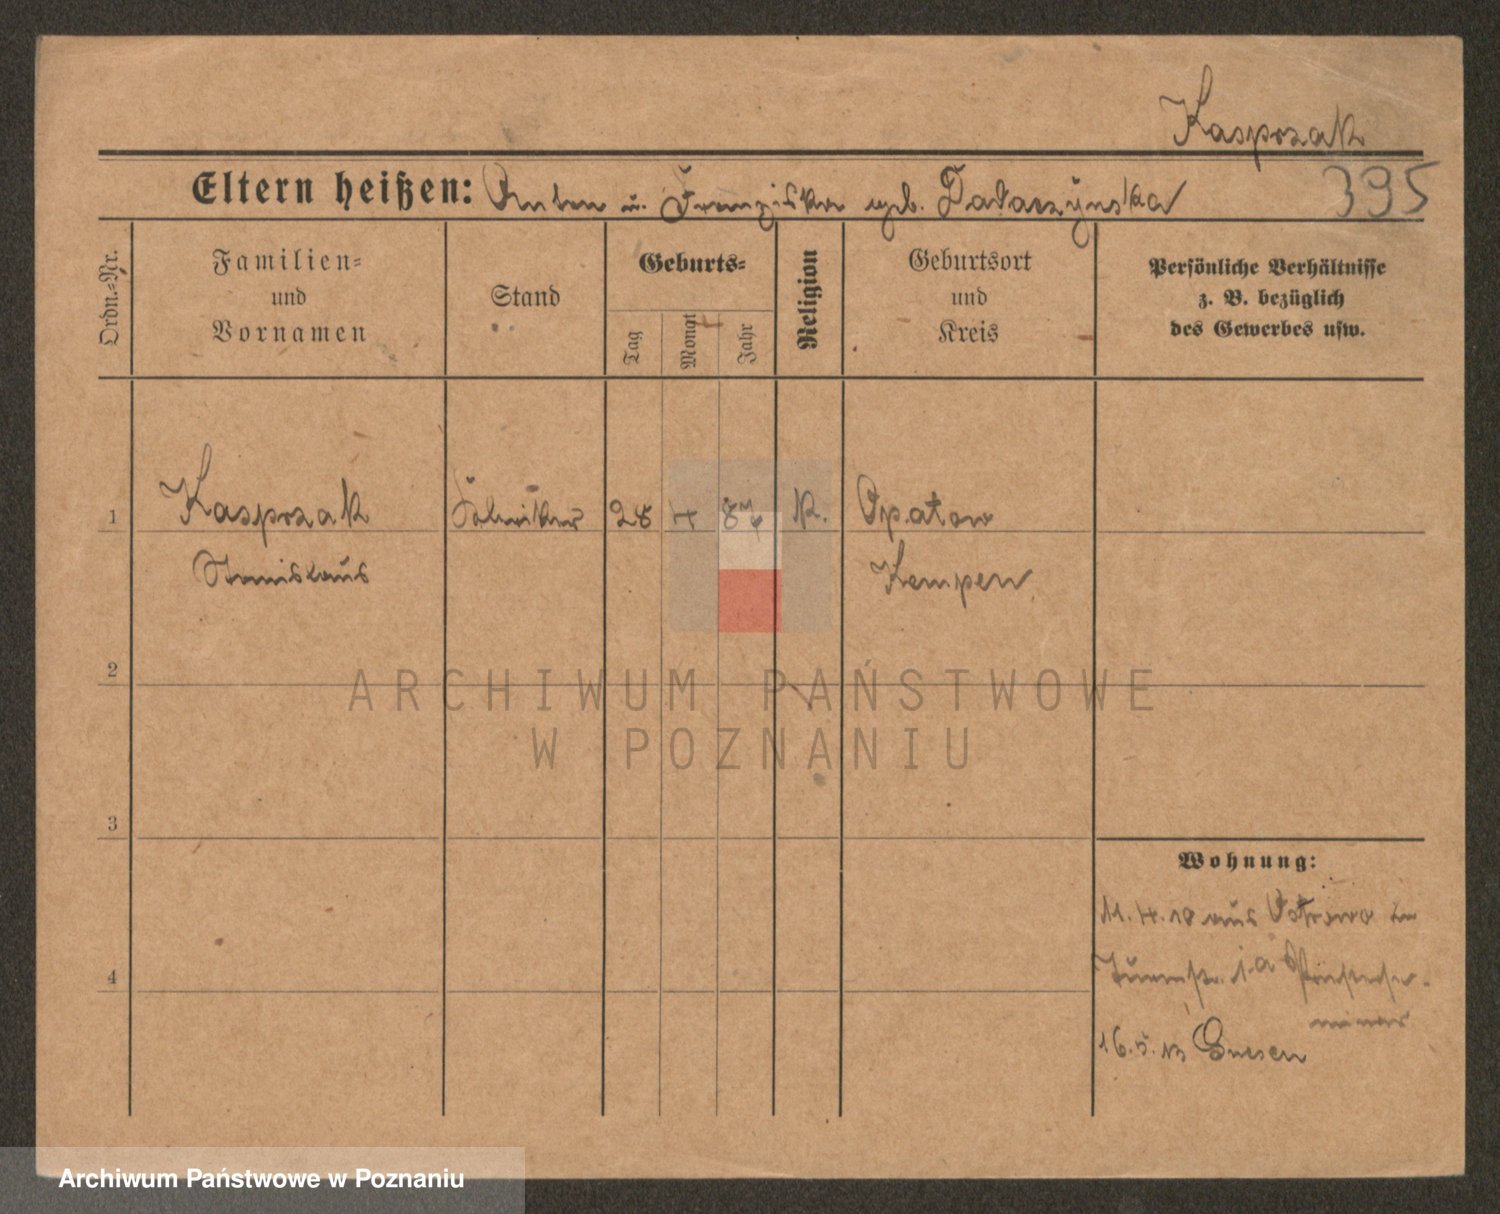 Kasprzak
Eltern heißen: Anton u. Franziska geb. Tataczynska
395
Ordn.-Nr.
Familien-
und
Vornamen
Stand
Geburts-
Tag
Monat
Jahr
Religion
Geburtsort
und
Kreis
Persönliche Verhältnisse
z. B. bezüglich
des Gewerbes usw.
1 Kasprzak 28 4 87 K. Opatow
Stanislaus Kempen
2
3
4
Wohnung:
11.4.10 aus Ostrowo
1a Priesterse-
minar
16.5.13 Gnesen
ARCHIWUM PAŃSTWOWE
W POZNANIU
Archiwum Państwowe w Poznaniu